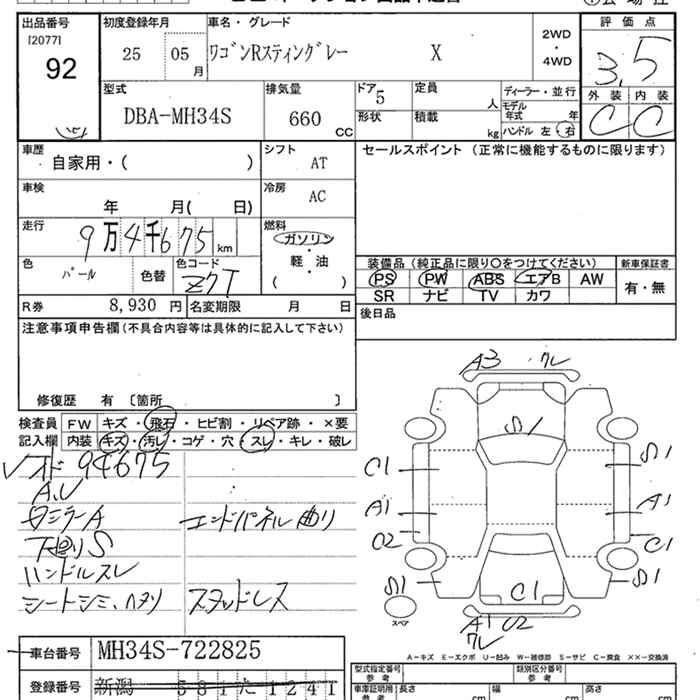 出品番号 初度登録年月 車名・グレード 評価点
[2077] 92 25 05月 ワゴンRスティングレー X 2WD・4WD 3.5
型式 排気量 ドア 定員 ディーラー・並行 外装 内装
DBA-MH34S 660 CC 5 人 モデル年式 年 C C
形状 積載 kg ハンドル 左・右
車歴 シフト セールスポイント (正常に機能するものに限ります)
自家用・( ) AT
車検 冷房
年 月( 日) AC
走行 燃料
9万4千675 km ガソリン
軽・油
( )
色 色コード 装備品(純正品に限り○をつけてください) 新車保証書
パール 色替 Z7T PS PW ABS エアB AW 有・無
SR ナビ TV カワ
R券 8,930 円 名変期限 月 日 後日品
注意事項申告欄(不具合内容等は具体的に記入して下さい)
修復歴 有 〔箇所 〕
検査員 FW キズ・飛石・ヒビ割・リペア跡・×要
記入欄 内装 キズ・汚レ・コゲ・穴・スレ・キレ・破レ
94675
A.U
エンドパネル曲り
下廻りS
ハンドルスレ
シートシミ、ヘタリ スタッドレス
A3 ワレ
C1
A1 A1
C1
C1
スペア
A1 U2
ワレ
A-キズ E-エクボ U-凹み W-補修跡 S-サビ C-腐食 XX-交換済
車台番号 MH34S-722825
型式指定番号 参考 類別区分番号 参考
登録番号 新潟 581 た 1241
車庫証明用 参考 長さ 幅 高さ